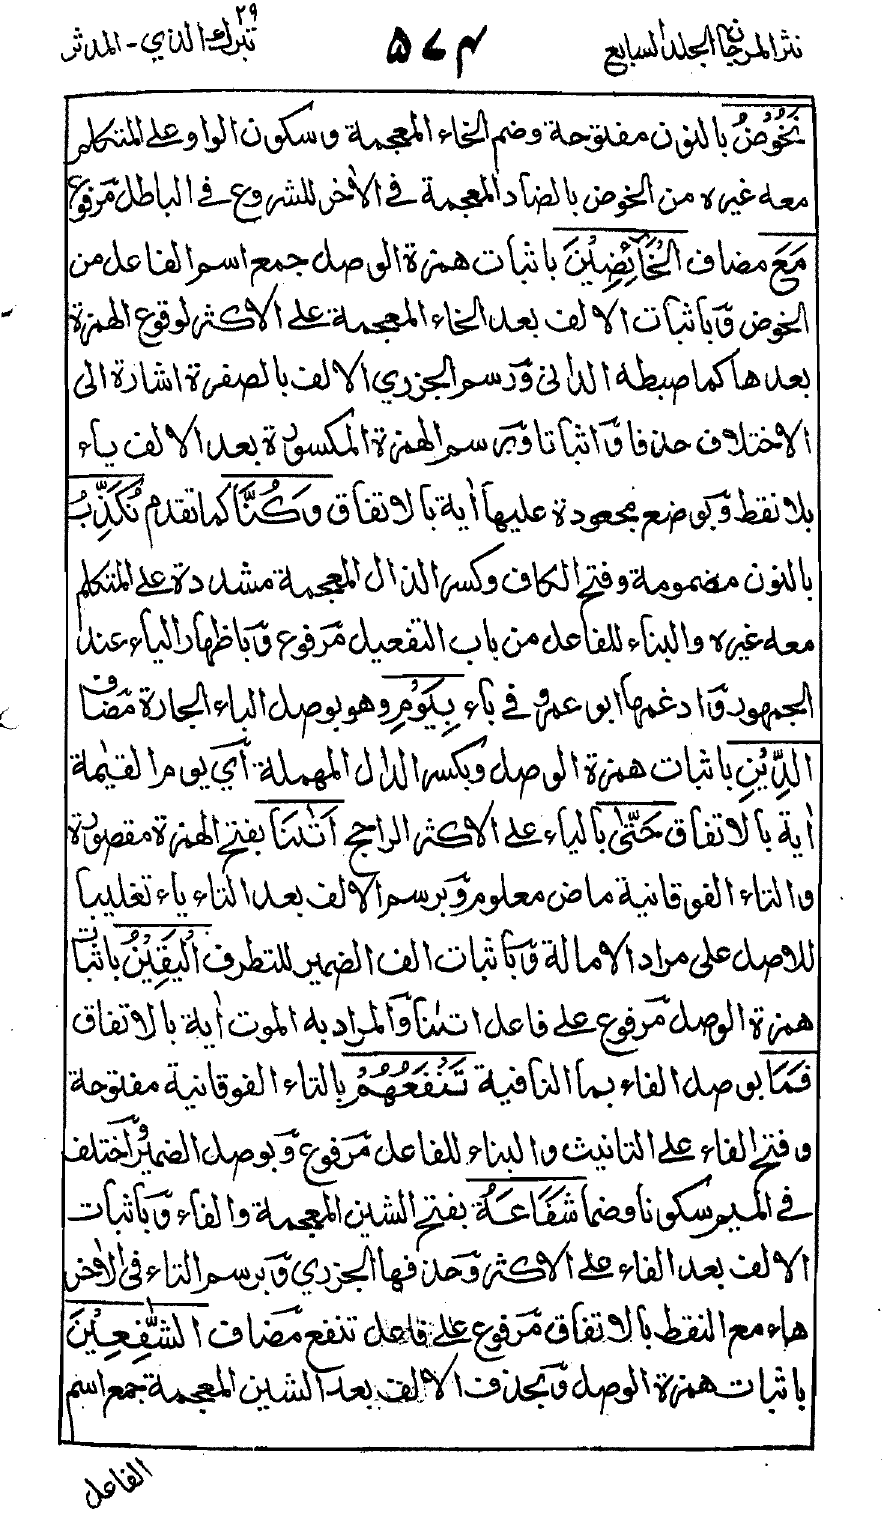 نثر المرجان الجلد السابع
٥٧٤
تبرك الذي ٢٩ - المدثر
نَخُوْضُ بالنون مفتوحة وضم الخاء المعجمة وسكون الواو على المتكلم
معه غيره من الخوض بالضاد المعجمة في الاخر للشروع في الباطل مرفوع
مَعَ مضاف الْخَآئِضِيْنَ باثبات همزة الوصل جمع اسم الفاعل من
الخوض وباثبات الالف بعد الخاء المعجمة على الاكثر لوقوع الهمزة
بعدها كما ضبطه الداني ورسم الجزري الالف بالصفرة اشارة الى
الاختلاف حذفا واثباتا وبرسم الهمزة المكسورة بعد الالف ياء
بلا نقط وبوضع مجعودة عليها اية بالاتفاق وَكُنَّا كما تقدم نُكَذِّبُ
بالنون مضمومة وفتح الكاف وكسر الذال المعجمة مشددة على المتكلم
معه غيره والبناء للفاعل من باب التفعيل مرفوع وباظهار الباء عند
الجمهور وادغمها ابو عمرو في باء بِيَوْمِ وهو بوصل الباء الجارة مضاف
الدِّيْنِ باثبات همزة الوصل وبكسر الدال المهملة اي يوم القيٰمة
اية بالاتفاق حَتّٰى بالياء على الاكثر الراجح اَتٰىنَا بفتح الهمزة مقصورة
والتاء الفوقانية ماض معلوم وبرسم الالف بعد التاء ياء تغليبا
للاصل على مراد الامالة وباثبات الف الضمير للتطرف الْيَقِيْنُ باثبات
همزة الوصل مرفوع على فاعل اتىنا والمراد به الموت اية بالاتفاق
فَمَا بوصل الفاء بما النافية تَنْفَعُهُمْ بالتاء الفوقانية مفتوحة
وفتح الفاء على التانيث والبناء للفاعل مرفوع وبوصل الضمير واختلف
في الميم سكونا وضما شَفَاعَةُ بفتح الشين المعجمة والفاء وباثبات
الالف بعد الفاء على الاكثر وحذفها الجزري وبرسم التاء في الاخر
هاء مع النقط بالاتفاق مرفوع على فاعل تنفع مضاف الشّٰفِعِيْنَ
باثبات همزة الوصل وبحذف الالف بعد الشين المعجمة جمع اسم
الفاعل